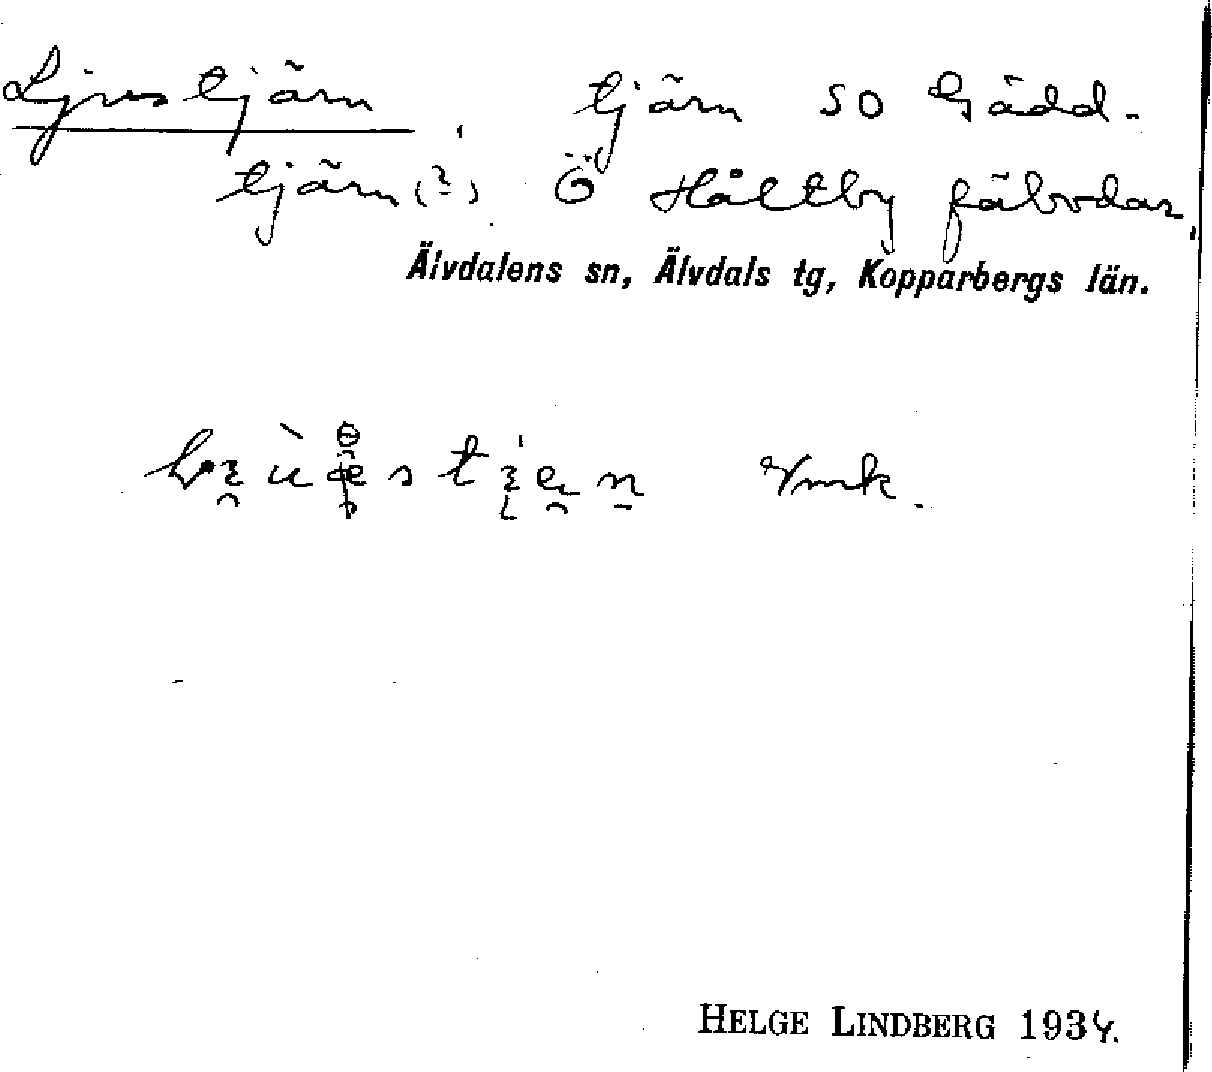 Ljustjärn, tjärn SO Gädd-
tjärn(?) Ö Håltby fäbodar,
Älvdalens sn, Älvdals tg, Kopparbergs län.
HELGE LINDBERG 1934.